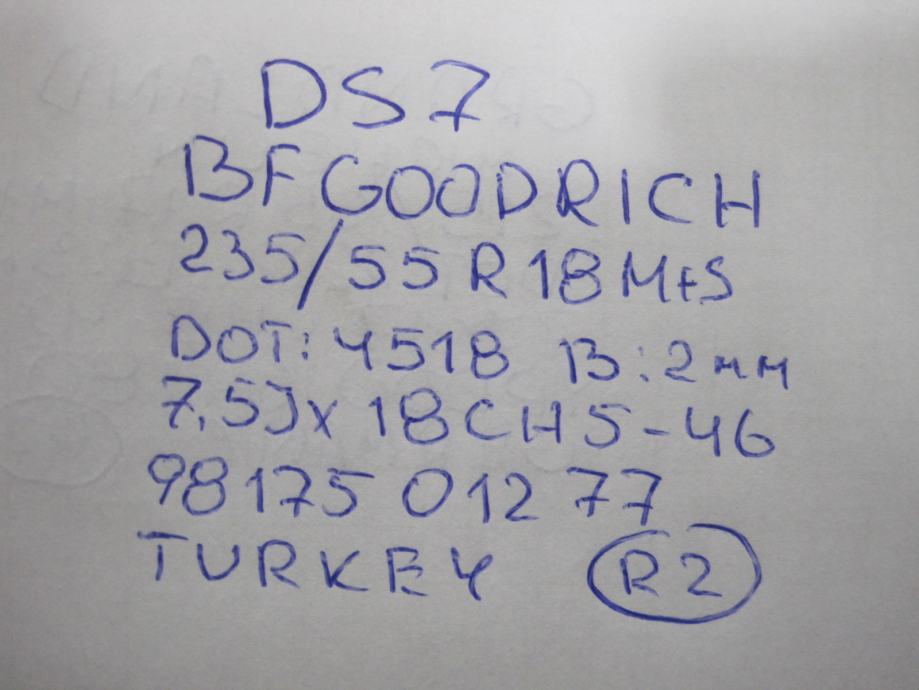 DS7
BFGOODRICH
235/55 R 18 M+S
DOT: 4518 B: 2 мм
7,5Jx 18 CH 5-46
98 175 012 77
TURKEY R2